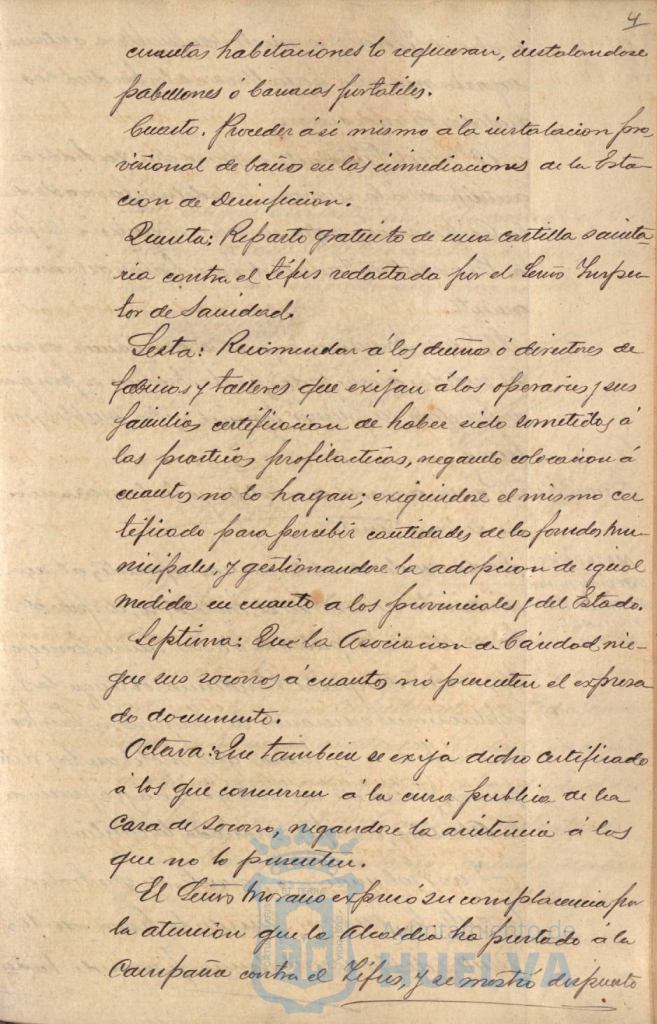 4
cuantas habitaciones lo requieran, instalandose
pabellones ó barracas portatiles.
Cuarto. Proceder ási mismo á la instalacion pro-
visional de baños en las inmediaciones de la Esta-
cion de Desinfeccion.
Quinta: Reparto gratuito de una cartilla sanita-
ria contra el Tifus redactada por el Señor Inspec-
tor de Sanidad.
Sesta: Recomendar á los dueños ó directores de
fabricas y talleres que exijan á los operarios y sus
familias certificacion de haber sido sometidos á
las practicas profilacticas, negando colocacion á
cuantos no lo hagan; exigiendose el mismo cer-
tificado para percibir cantidades de los fondos mu-
nicipales, y gestionandose la adopcion de igual
medida en cuanto a los provinciales y del Estado.
Septima: Que la Asociacion de Caridad nie-
gue sus socorros á cuantos no presenten el expresa
do documento.
Octava: Que tambien se exija dicho certificado
á los que concurren á la cura publica de la
Casa de Socorro, negandose la asistencia á los
que no lo presenten.
El Señor Morano expresó su complacencia por
la atencion que la Alcaldia ha prestado á la
Campaña contra el Tifus, y se mostró dispuesto
HUELVA